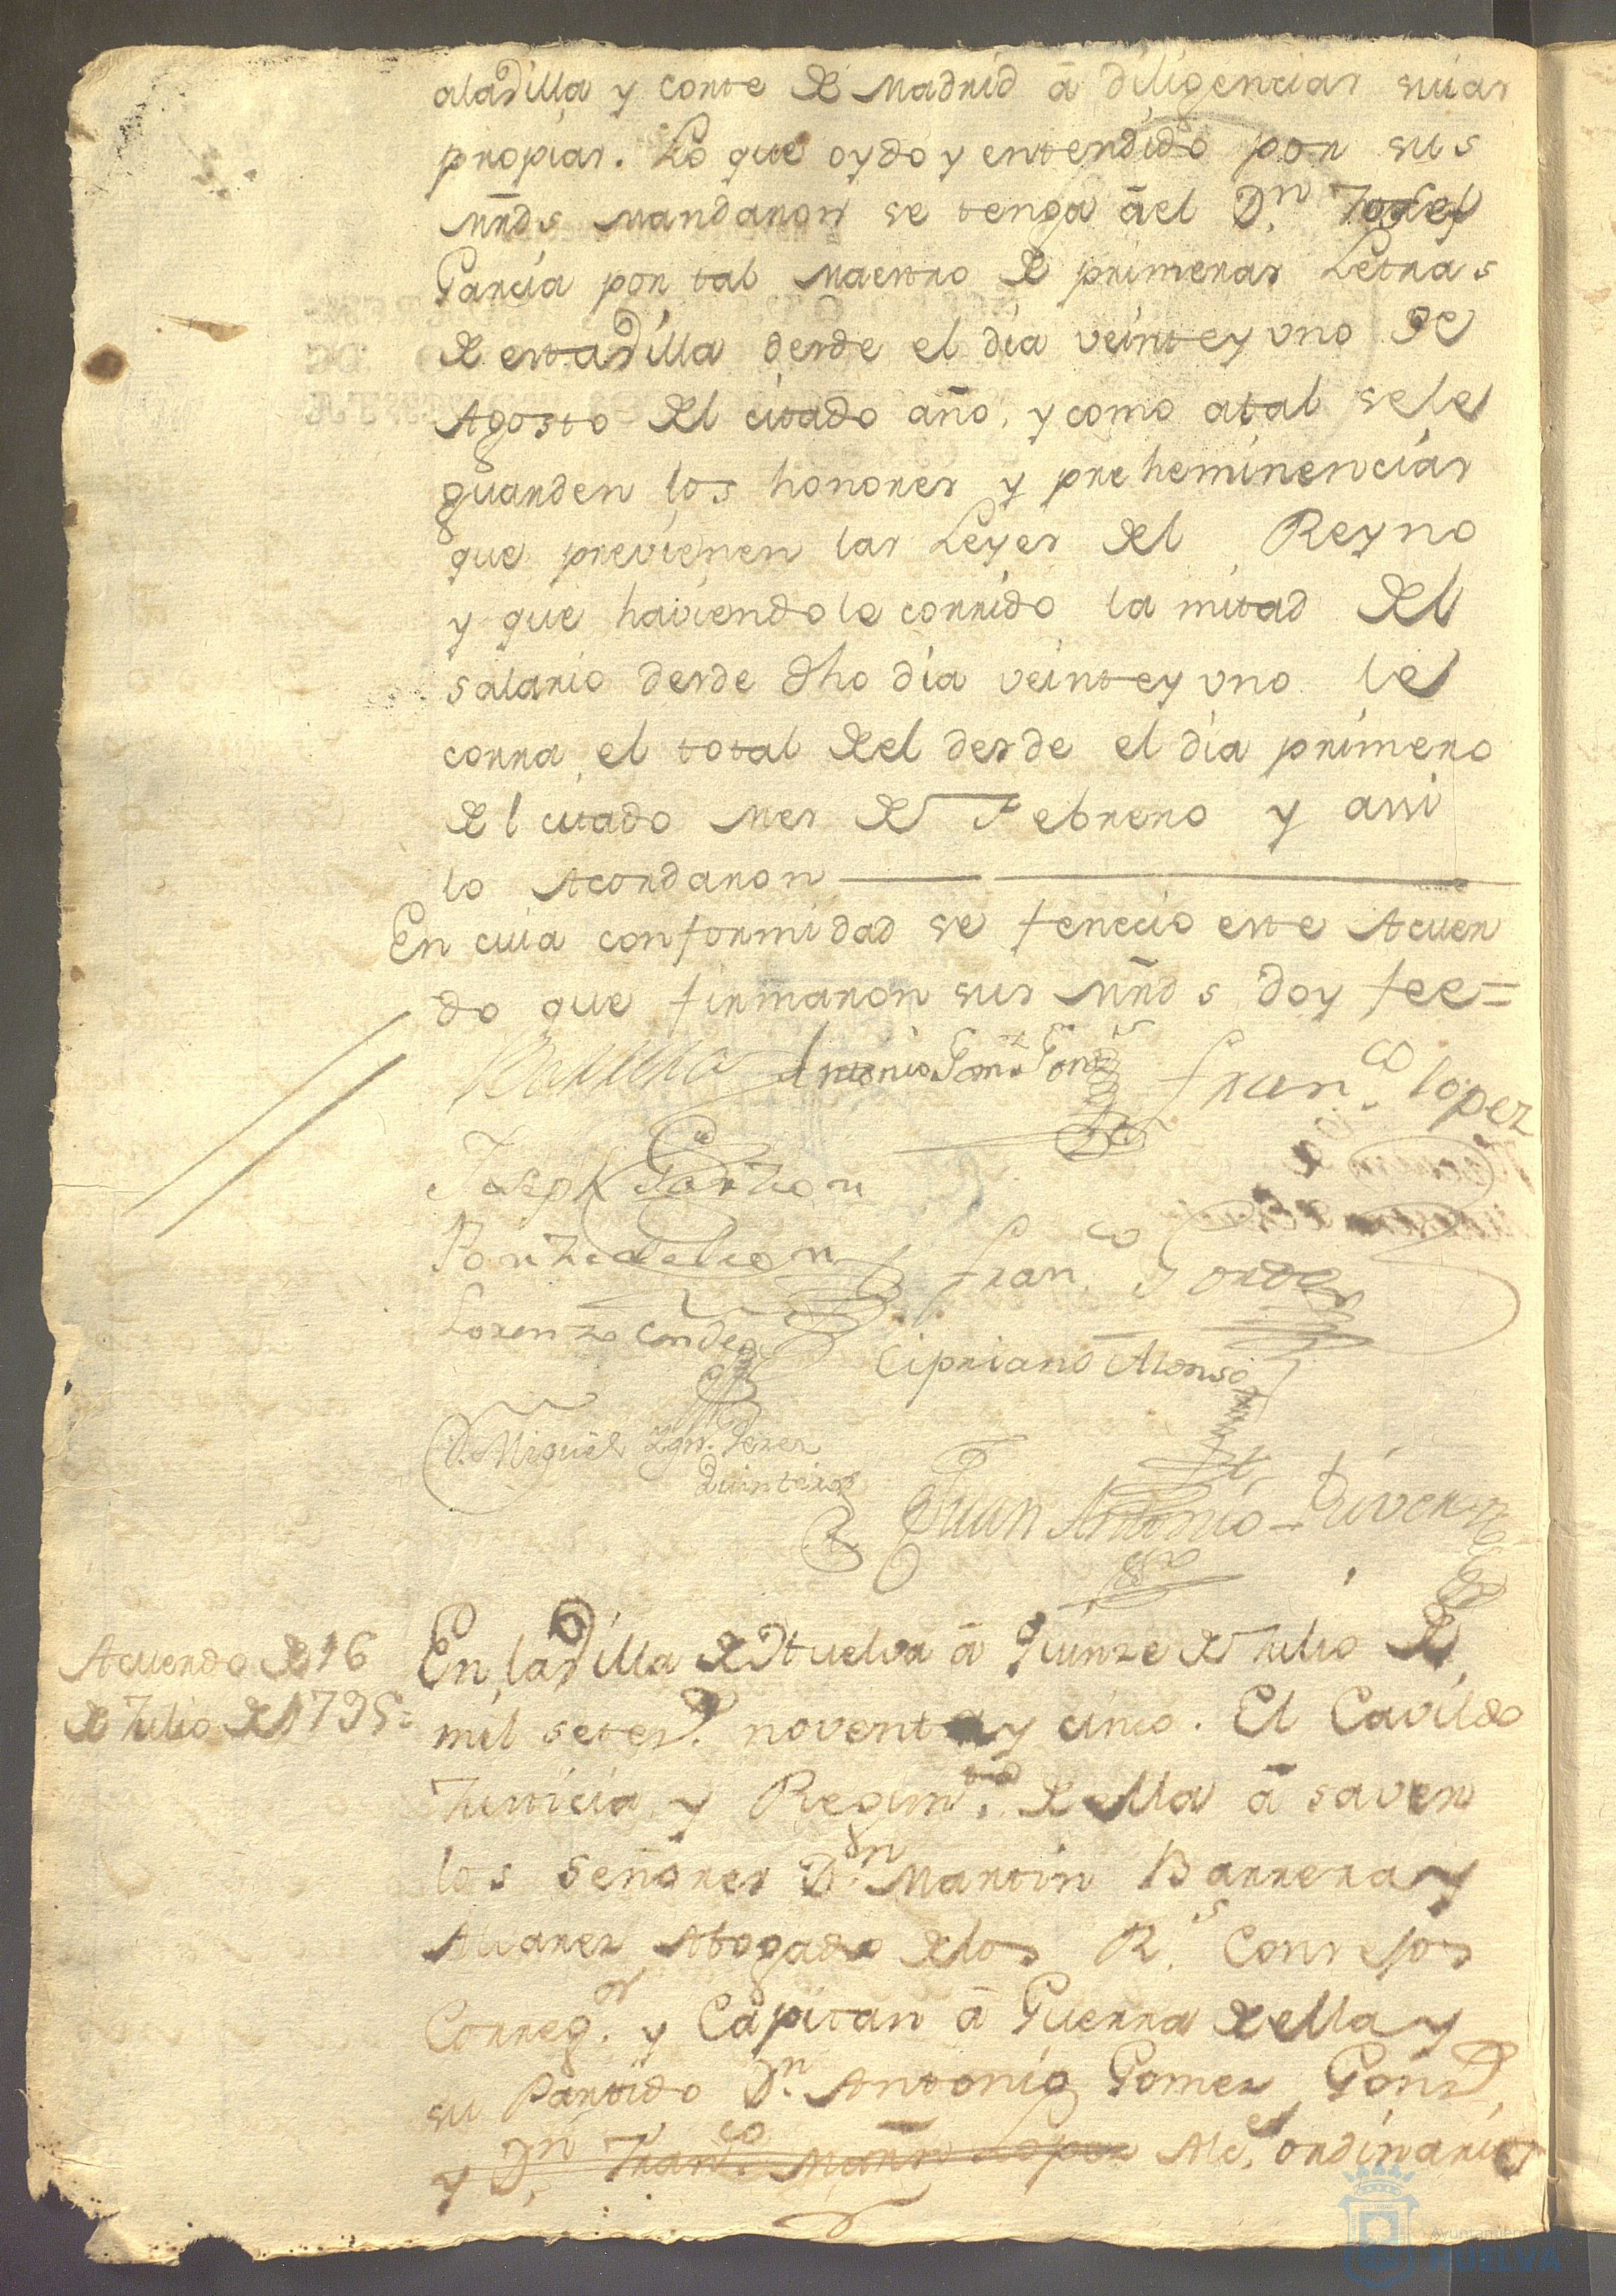 alaVilla y Corte de Madrid â diligencias suias
propias. Lo que oydo y entendido por sus
Mrds Mandaron se tenga âel Dn. Josef
Garcia por tal Maestro de primeras Letras
de estaVilla desde el dia veinte y uno de
Agosto del citado año, y como atal sele
guarden los honores y preheminencias
que previenen las Leyes del Reyno
y que haviendole corrido la mitad del
salario desde dho dia veinte y uno le
corra el total del desde el dia primero
del citado Mes de Febrero y assi
lo Acordaron
En cuia conformidad se fenecio este Acuer
do que firmaron sus Mrds doy fee=
Barrera Antonio Gomz Gonz Franco. lopez
Joseph Garzon
Ponze de leon Franco. Jordan
Lorenzo Conde
Cipriano Alonso
D. Miguel Ign. Perez
Quintero
Juan Antonio Rivera
Acuerdo de 16
de Julio de 1795=
En laVilla de Huelva â Quinze de Julio de
mil setes. noventa y cinco. El Cavildo
Justicia y Regimto. de ella â saver
los Señores Dn. Martin Barrera y
Alvarez Abogado de los Rs. Consejos
Corregor. y Capitan â Guerra de ella y
su Partido Dn. Antonio Gomez Gonz
y Dn. Franco. Martn Lopez Alces. ordinarios
Ayuntamiento
HUELVA